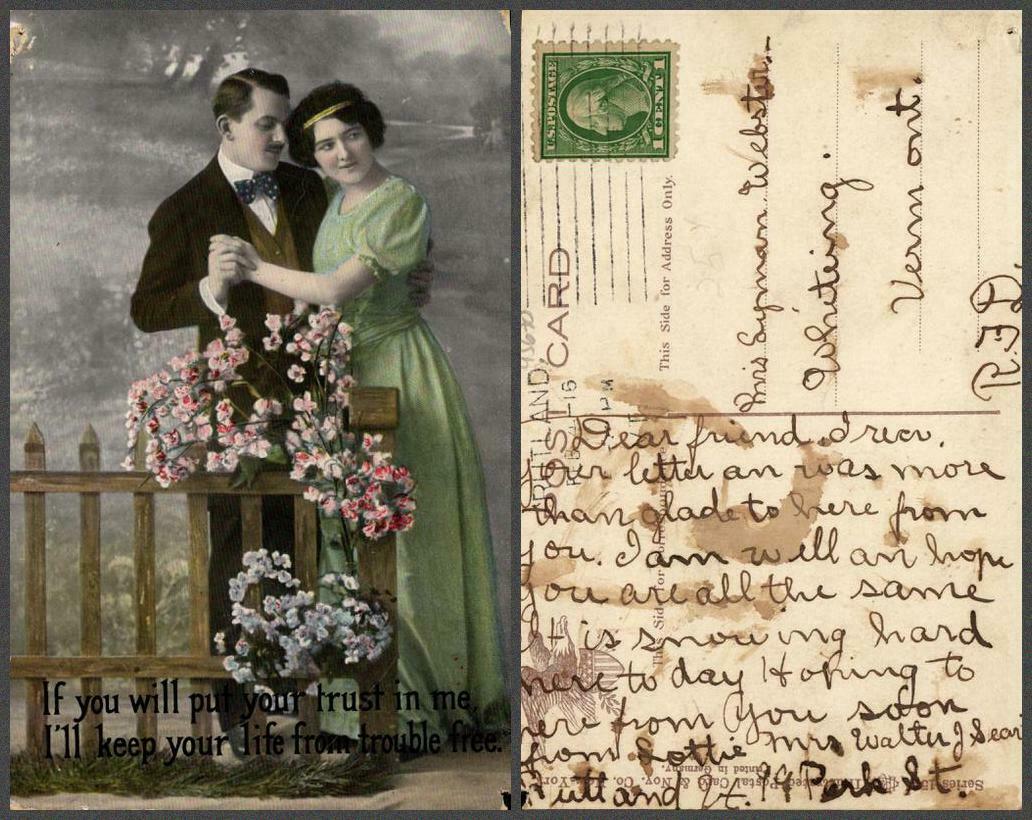 If you will put your trust in me,
I'll keep your life from trouble free.
U.S. POSTAGE
1 CENT 1
CARD
This Side for Address Only.
Mrs Lyman Webster.
Whiting.
Vermont.
R.F.D.
Dear friend. I recv.
your letter an was more
than glade to here from
you. I am well an hope
you are all the same
It is snowing hard
here to day Hoping to
here from you soon
from Lottie Mrs Walter J Sears
Rutland Vt. 19 Park St.
RUTLAND,
PM
This Side for
Post Card & Nov. Co.
Printed in Germany.